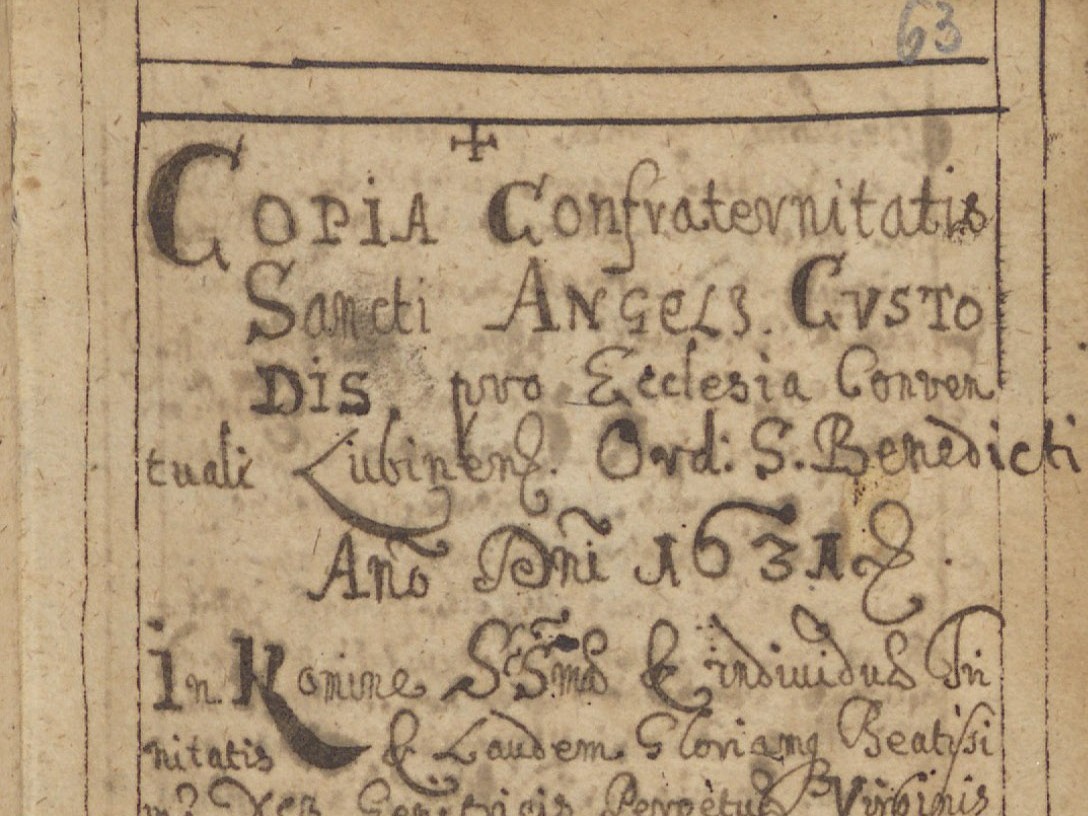 63
+
COPIA Confraternitatis
Sancti ANGELI CVSTO
DIS pro Ecclesia Conven
tuali Lubinens. Ord: S. Benedicti
Anõ Dnĩ 1631
In Nomine SSmæ & individuæ Tri
nitatis & Laudem Gloriamq Beatissi
Genetricis Perpetuæ Virginis